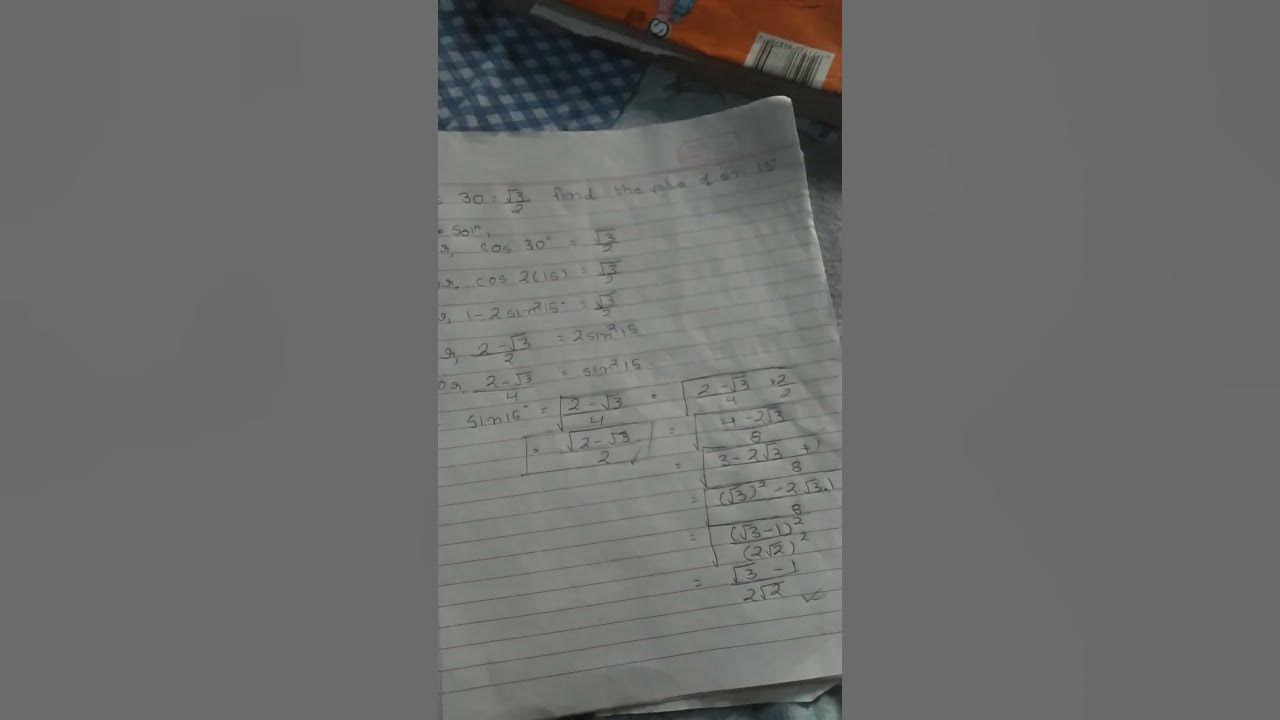 30 = √3/2 find the value of sin 15°
Soln,
cos 30° = √3/2
or, cos 2(15) = √3/2
1 - 2sin²15° = √3/2
2 - √3/2 = 2sin²15
or, 2 - √3/4 = sin²15
sin15° = √(2 - √3/4) = √(2 - √3/4 × 2/2)
= √(2 - √3)/2 ✓ = √(4 - 2√3/8)
= √(3 - 2√3 + 1/8)
= √((√3)² - 2√3.1/8)
= √((√3 - 1)²/(2√2)²)
= √3 - 1/2√2 ✓